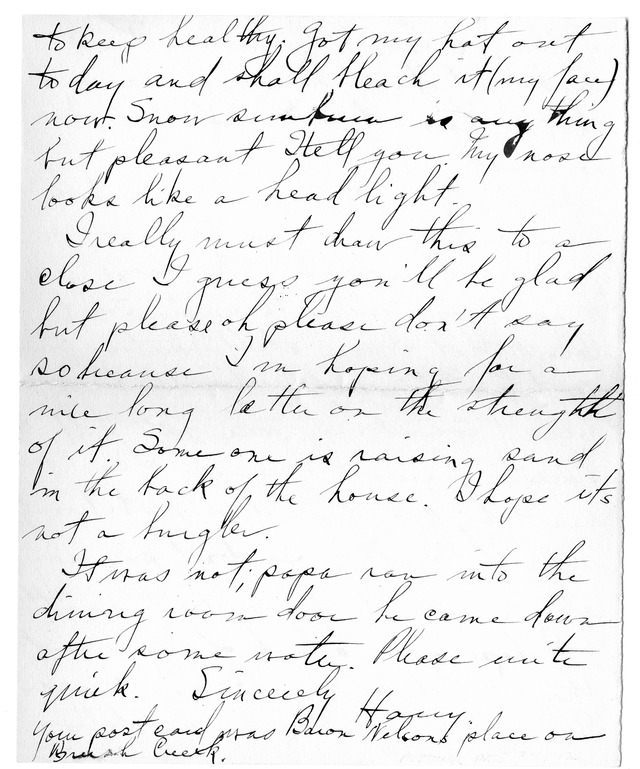 to keep healthy. Got my hat out
today and shall bleach it (my face)
now. Snow sunburn is any thing
but pleasant I tell you. My nose
looks like a head light.
I really must draw this to a
close I guess you'll be glad
but please oh please don't say
so because I'm hoping for a
nice long letter on the strenght
of it. Some one is raising sand
in the back of the house. I hope its
not a burgler.
It was not; papa ran into the
dining room door he came down
after some water. Please write
quick. Sincerely
Harry
Your post card was Baron Nelsons place on
Brush Creek.